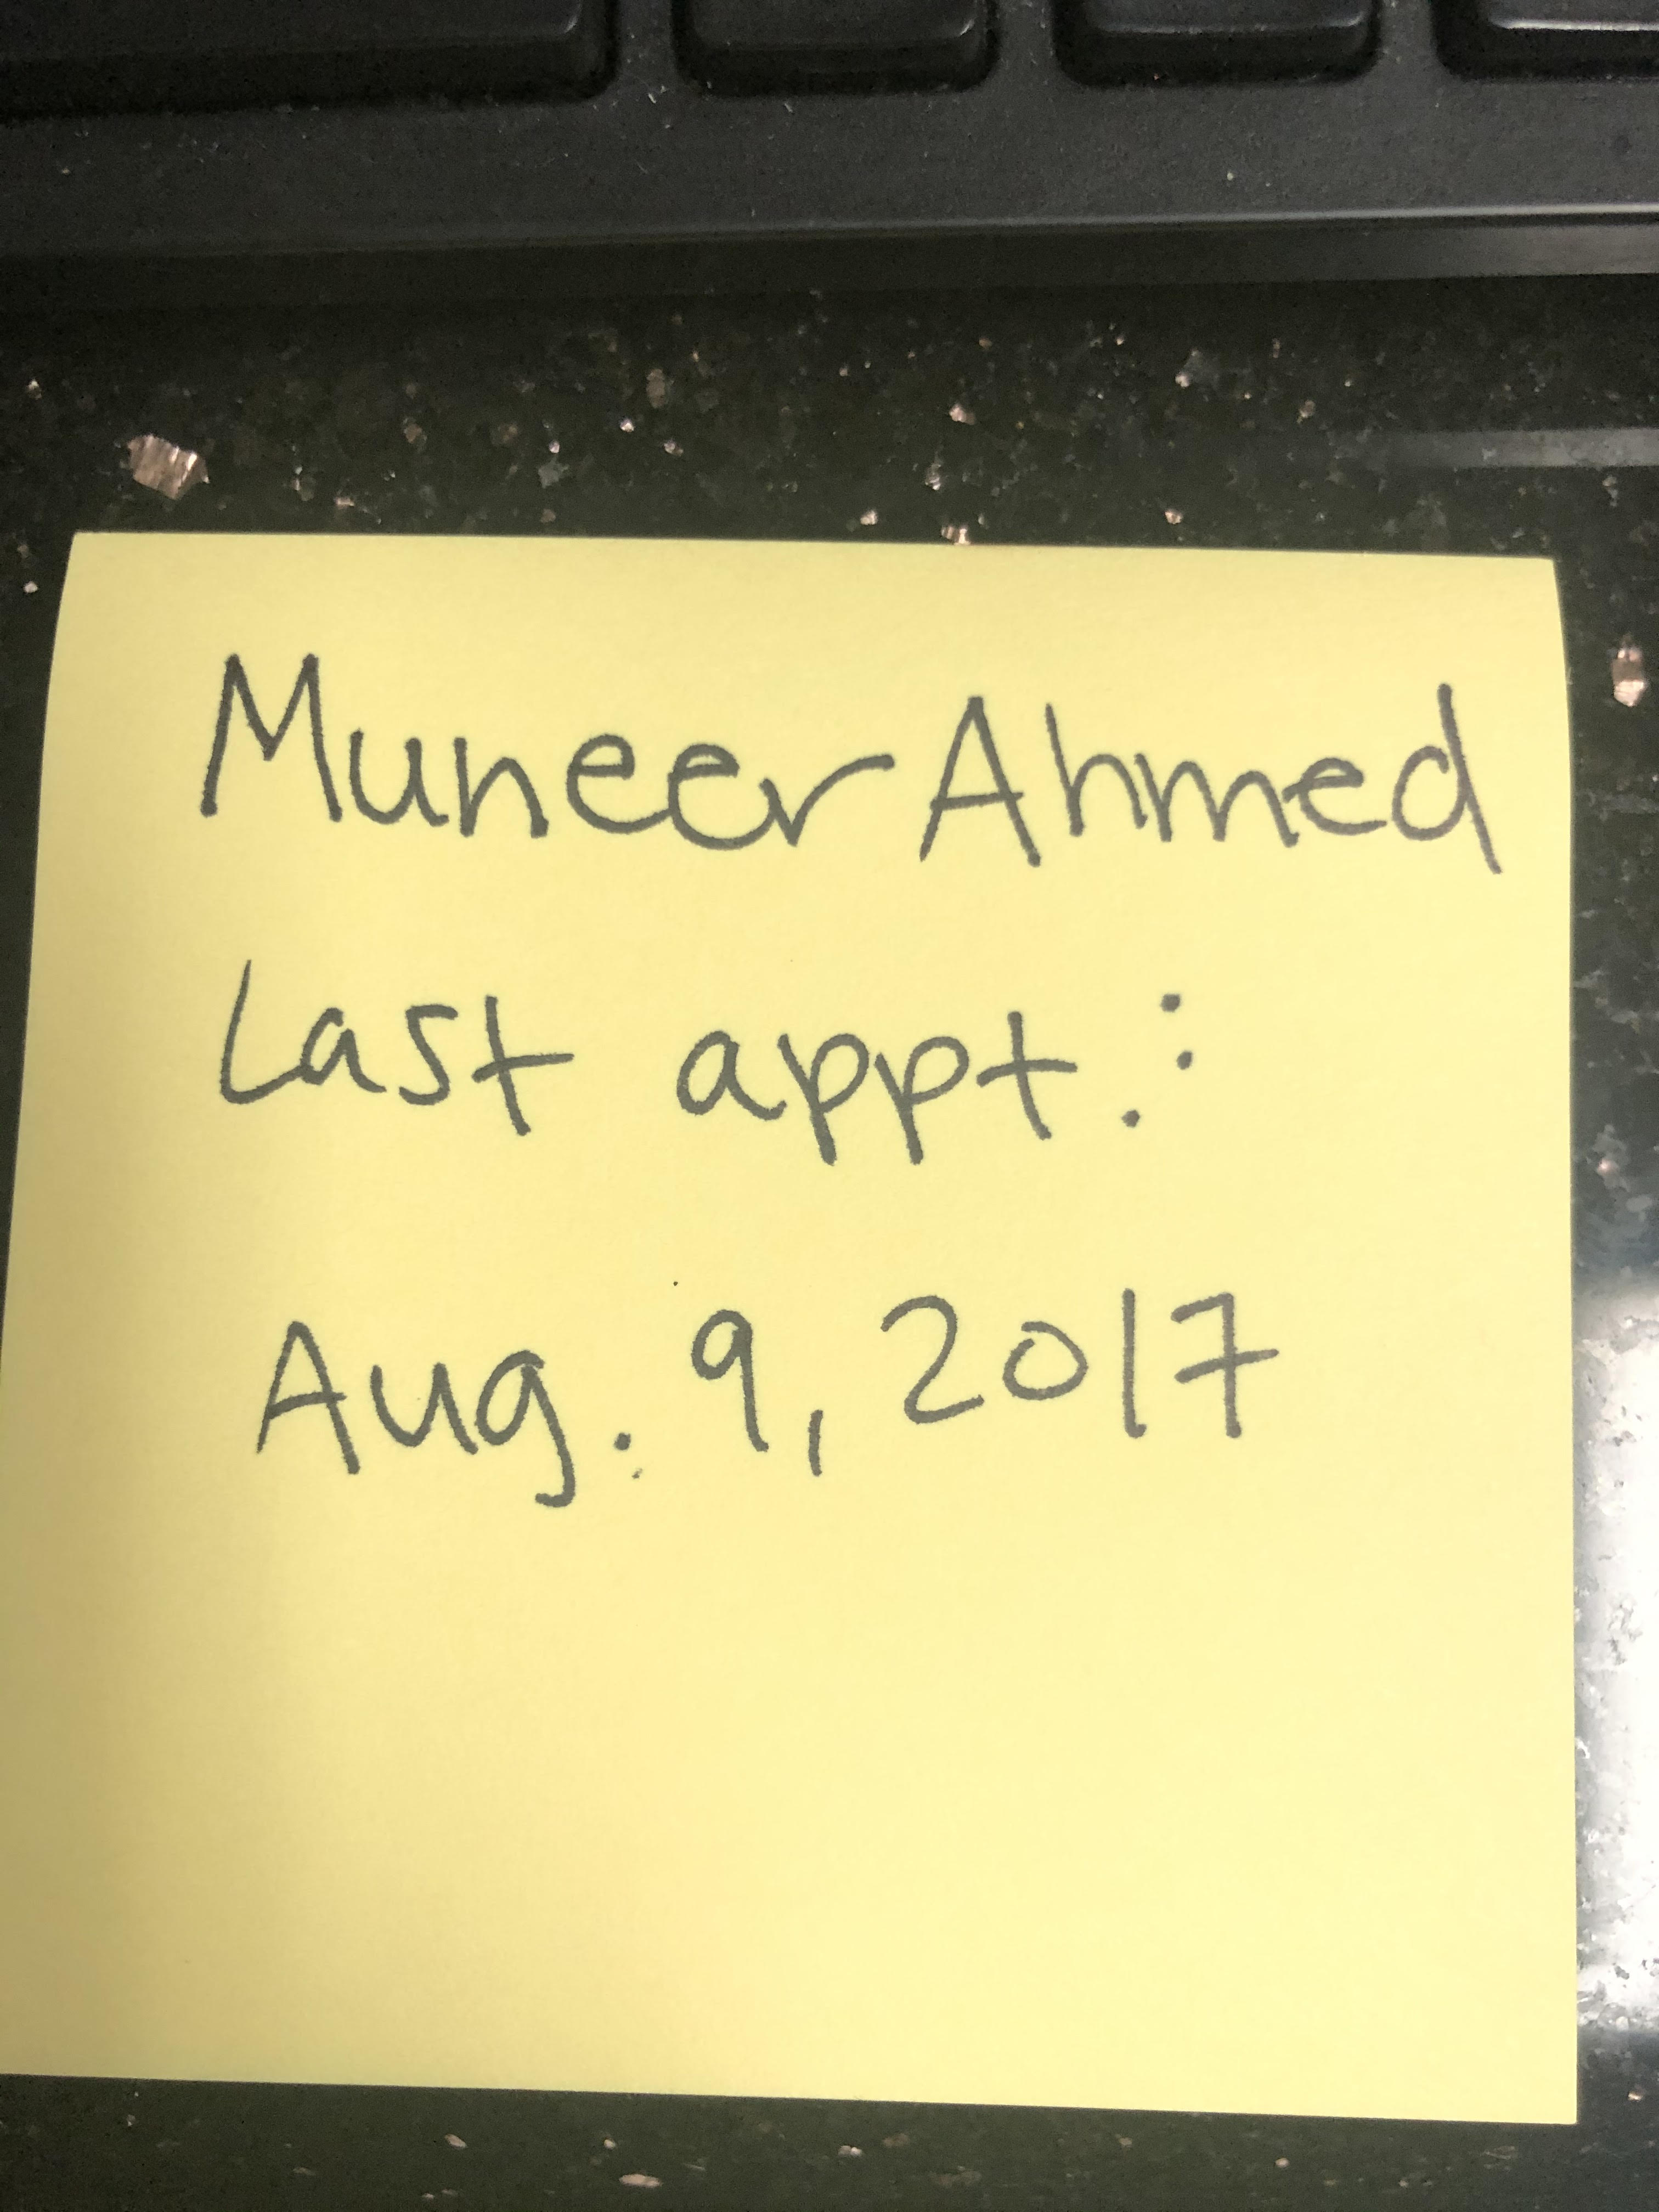 Muneer Ahmed
Last appt.:
Aug. 9, 2017